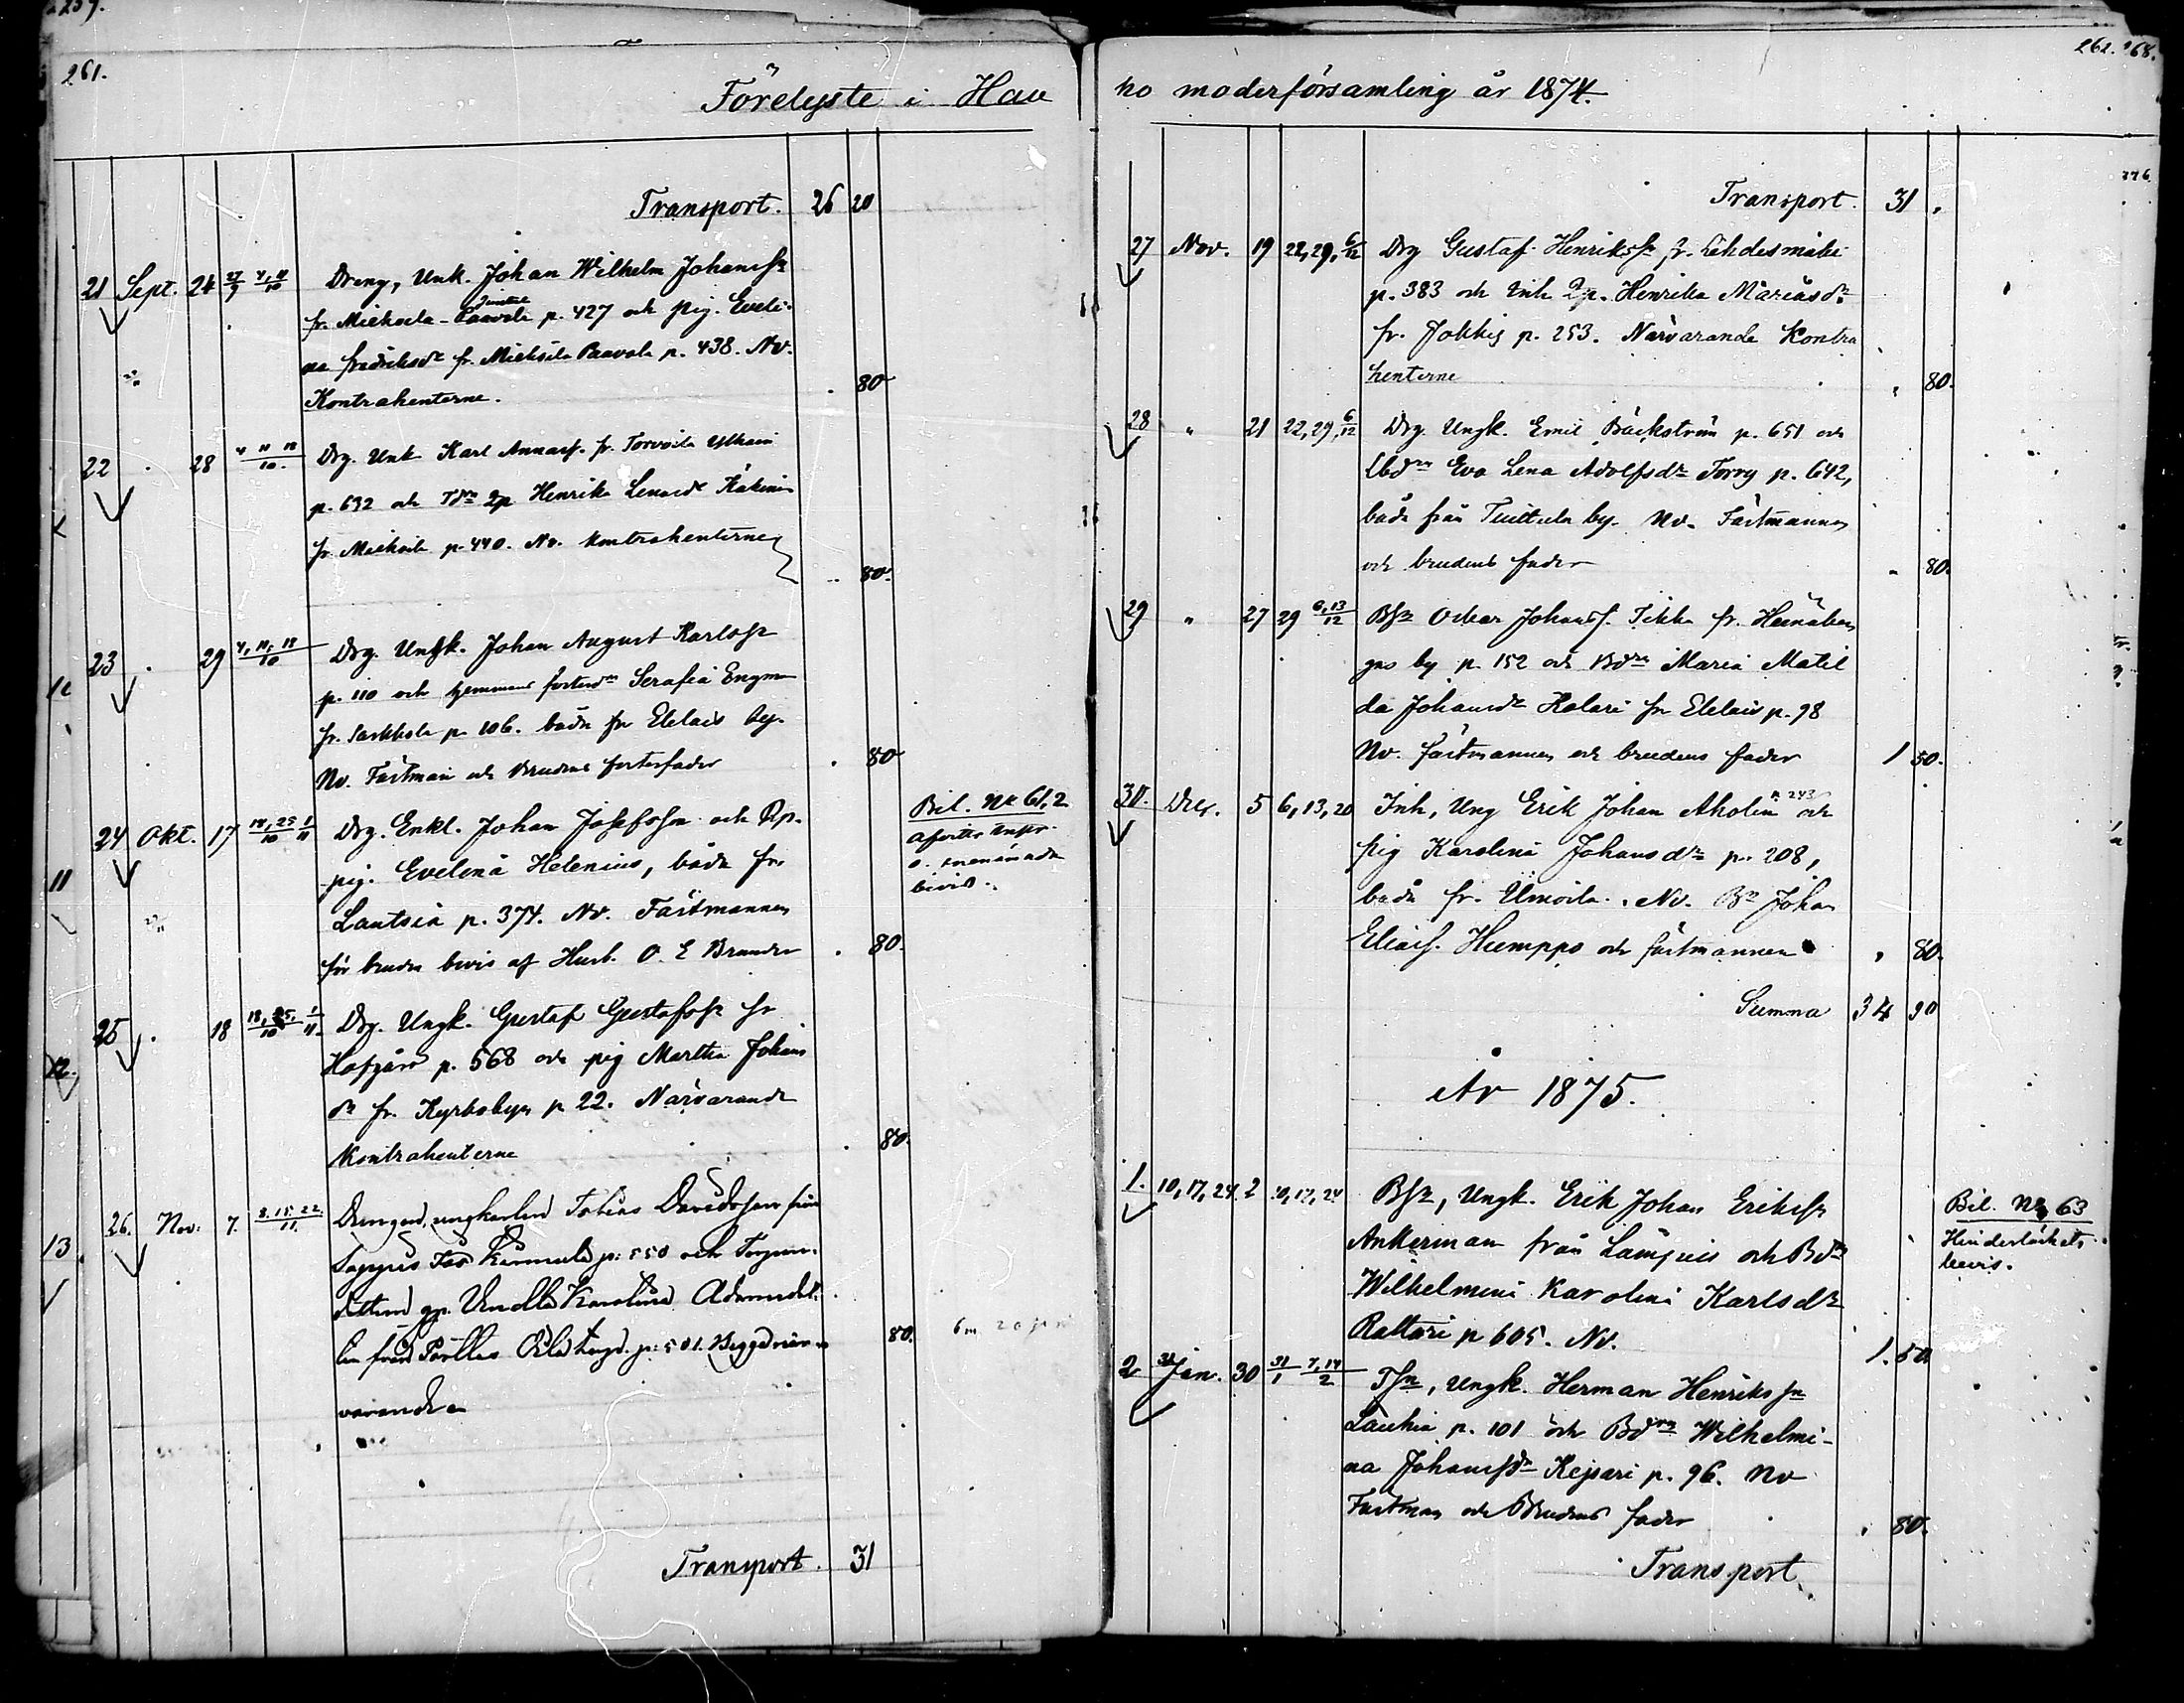 261.
Förelyste i Hau
Transport. 26 20
21 Sept. 24 27/9 4, 11/10 Dreng, Unk. Johan Wilhelm Johansn
fr. Miekoila - Paavola p. 427 och pig. Eveli-
na fredriksdr fr. Miekoila Paavola p. 438. Nv.
Kontrahenterne. 80
22 28 4 11 18/10. Drg. Unk Karl Annasn. fr. Torvoila
p. 632 och Tdrn 2p Henrika
fr. Miekoila p. 440. Nv. kontrahenterne
80.
23 29 4, 11, 18/10 Drg. Ungk. Johan August Karlssn
p. 110 och hemmans fosterdrn Serafia Engman
fr. Sarkkola p. 106. båda fr Elelais by.
Nv. Fästman och Brudens fosterfader 80
24 Okt. 17 18, 25/10 1/11 Drg. Enkl. Johan Josefsson och Qp.
pig. Evelina Helenius, båda fr.
Lautsia p. 374. Nv. Fästmannen
för bruden bevis af Husb. O. E Brander 80.
Bil. Nr 61, 2
bevis.
25 18 18, 25/10 1/11. Drg. Ungk. Gustaf Gustafssn fr
Hofgård p. 568 och pig Martha Johans
dr fr. Kyrkobyn p 22. Närvarande
Kontrahenterne 80.
26. Nov: 7. 8. 15. 22/11. Drengen, ungkarlen Tobias Davidsson från
p: 550 och Torpare-
dottren qp. Karolina
från p: 501. Begge när-
varande 80.
Transport. 31
262. 268.
ho moderförsamling år 1874.
Transport. 31
27 Nov. 19 22, 29, 6/12 Drg Gustaf Henrikssn fr. Lehdesmäki
p. 383 och Inh 2p. Henrika Mariasdr
fr. Jokkis p. 253. Närvarande Kontra
henterne 80.
28 " 21 22, 29, 6/12 Drg. Ungk. Emil Bäckström p. 651 och
Eva Lena Adolfsdr Torry p. 642,
båda från Tuittula by. Nv. Fästmannen
och brudens fader 80.
29 " 27 29 6, 13/12 Bsn Oskar Johanss. Tikka fr. Heinäkan
gas by p. 152 och Bdrn Maria Matil
da Johansdr Kalari fr Elelais p. 98
Nv. fästmannen och brudens fader 1 50.
30. Dec. 5 6, 13, 20 Inh, Ung Erik Johan Aholin p. 243 och
pig Karolina Johansdr p. 208,
båda fr. Umoila. Nv. Bn Johan
Eliass. Humppo och fästmannen 80.
Summa 34 90
År 1875.
1. 10, 17, 24 2 10, 17, 24 Bsn, Ungk. Erik Johan Erikssn
Ankerman från Lampis och Bdrn
Wilhelmina Karolina Karlsdr
Rattari p 605. Nv. 1. 50
Bil. Nr 63
Hinderlöshets
bevis.
2 Jan. 30 31/1 7, 14/2 Tsn, Ungk. Herman Henrikssn
Laukia p. 101 och Bdrn Wilhelmi-
na Johansdr Kejsari p. 96. Nv
Fästman och Brudens fader 80.
Transport